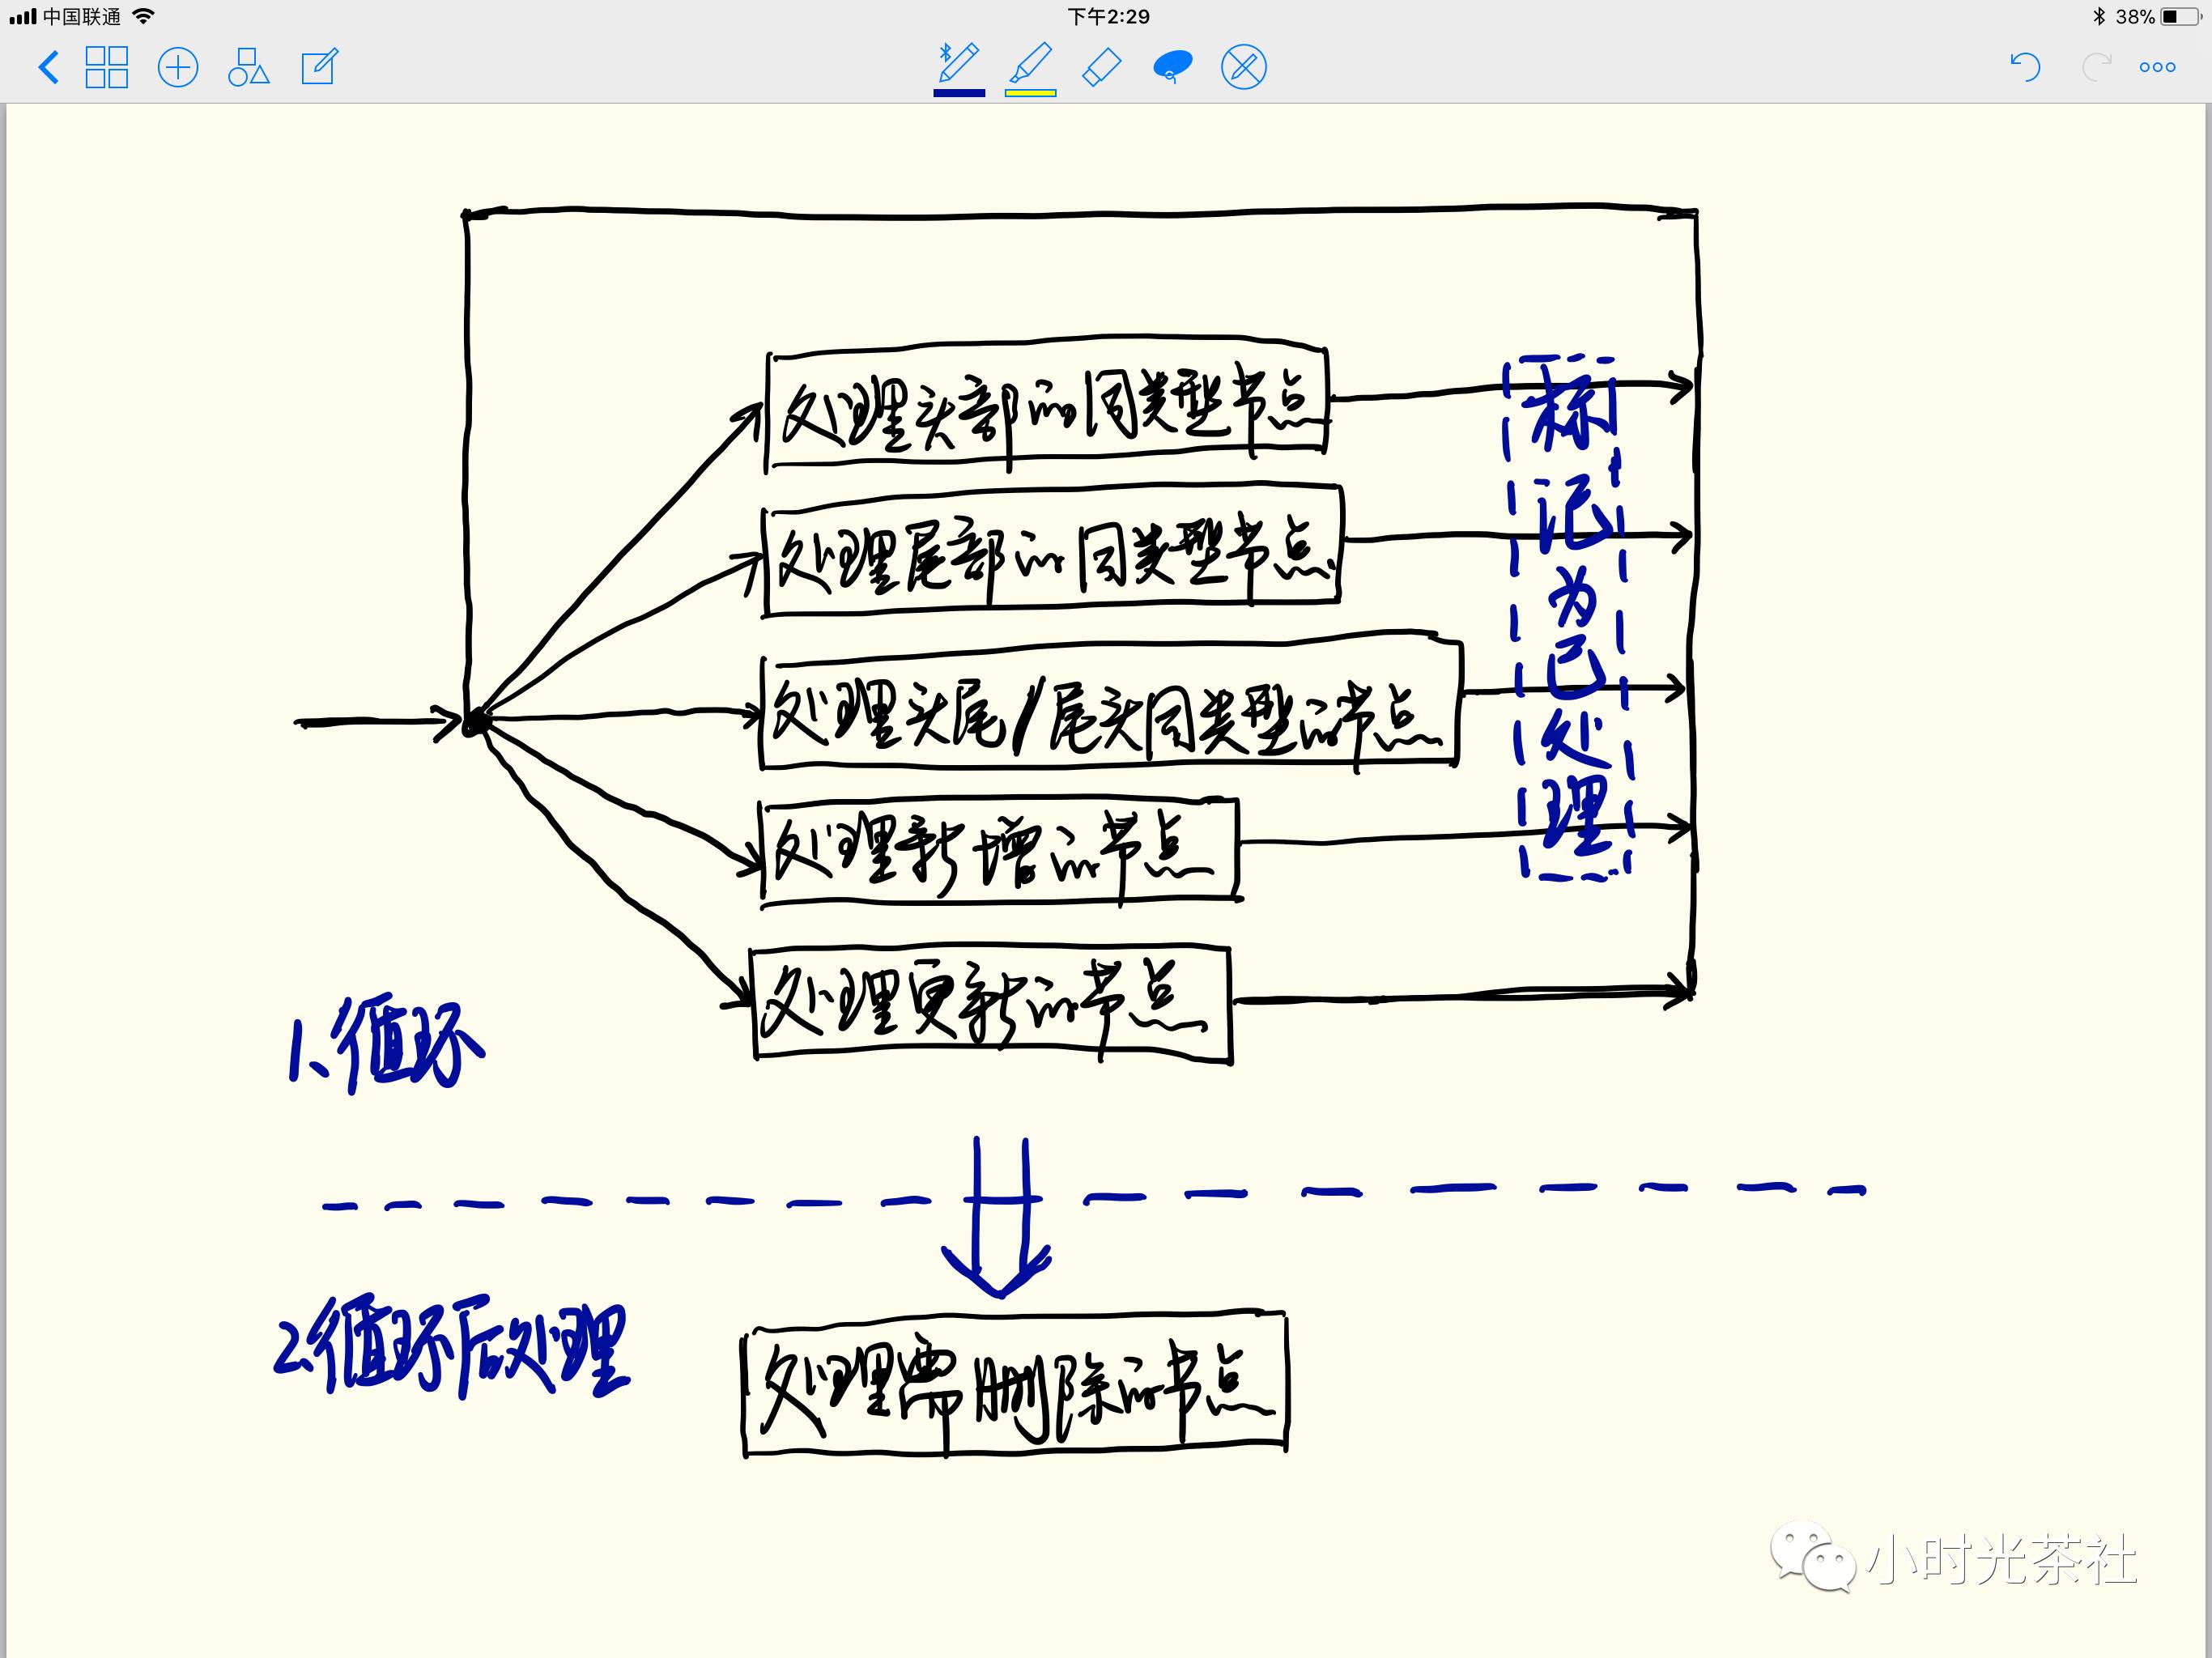 中国联通
下午2:29
38%
处理头部的同类型节点
处理尾部的同类型节点
处理头尾/尾头同类型的节点
处理新增的节点
处理更新的节点
标记为已处理
1.循环
2.循环后处理
处理需删除的节点
小时光茶社